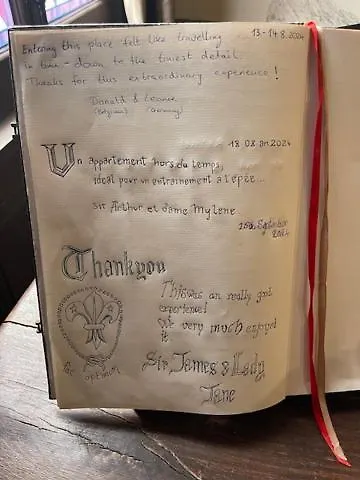 13-14 8.2024
Entering this place felt like travelling
in time - down to the tiniest detail.
Thanks for this extraordinary experience!
Donald & Leonie
(Belgium) (Germany)
18 08 an 2024
Un appartement hors du temps,
idéal pour un entrainement a l'épée...
Sir Arthur et dame Mylene
September
2024
Thankyou
This was an really good
experience!
We very much enjoyed
it
Sir James & Lady
Jane